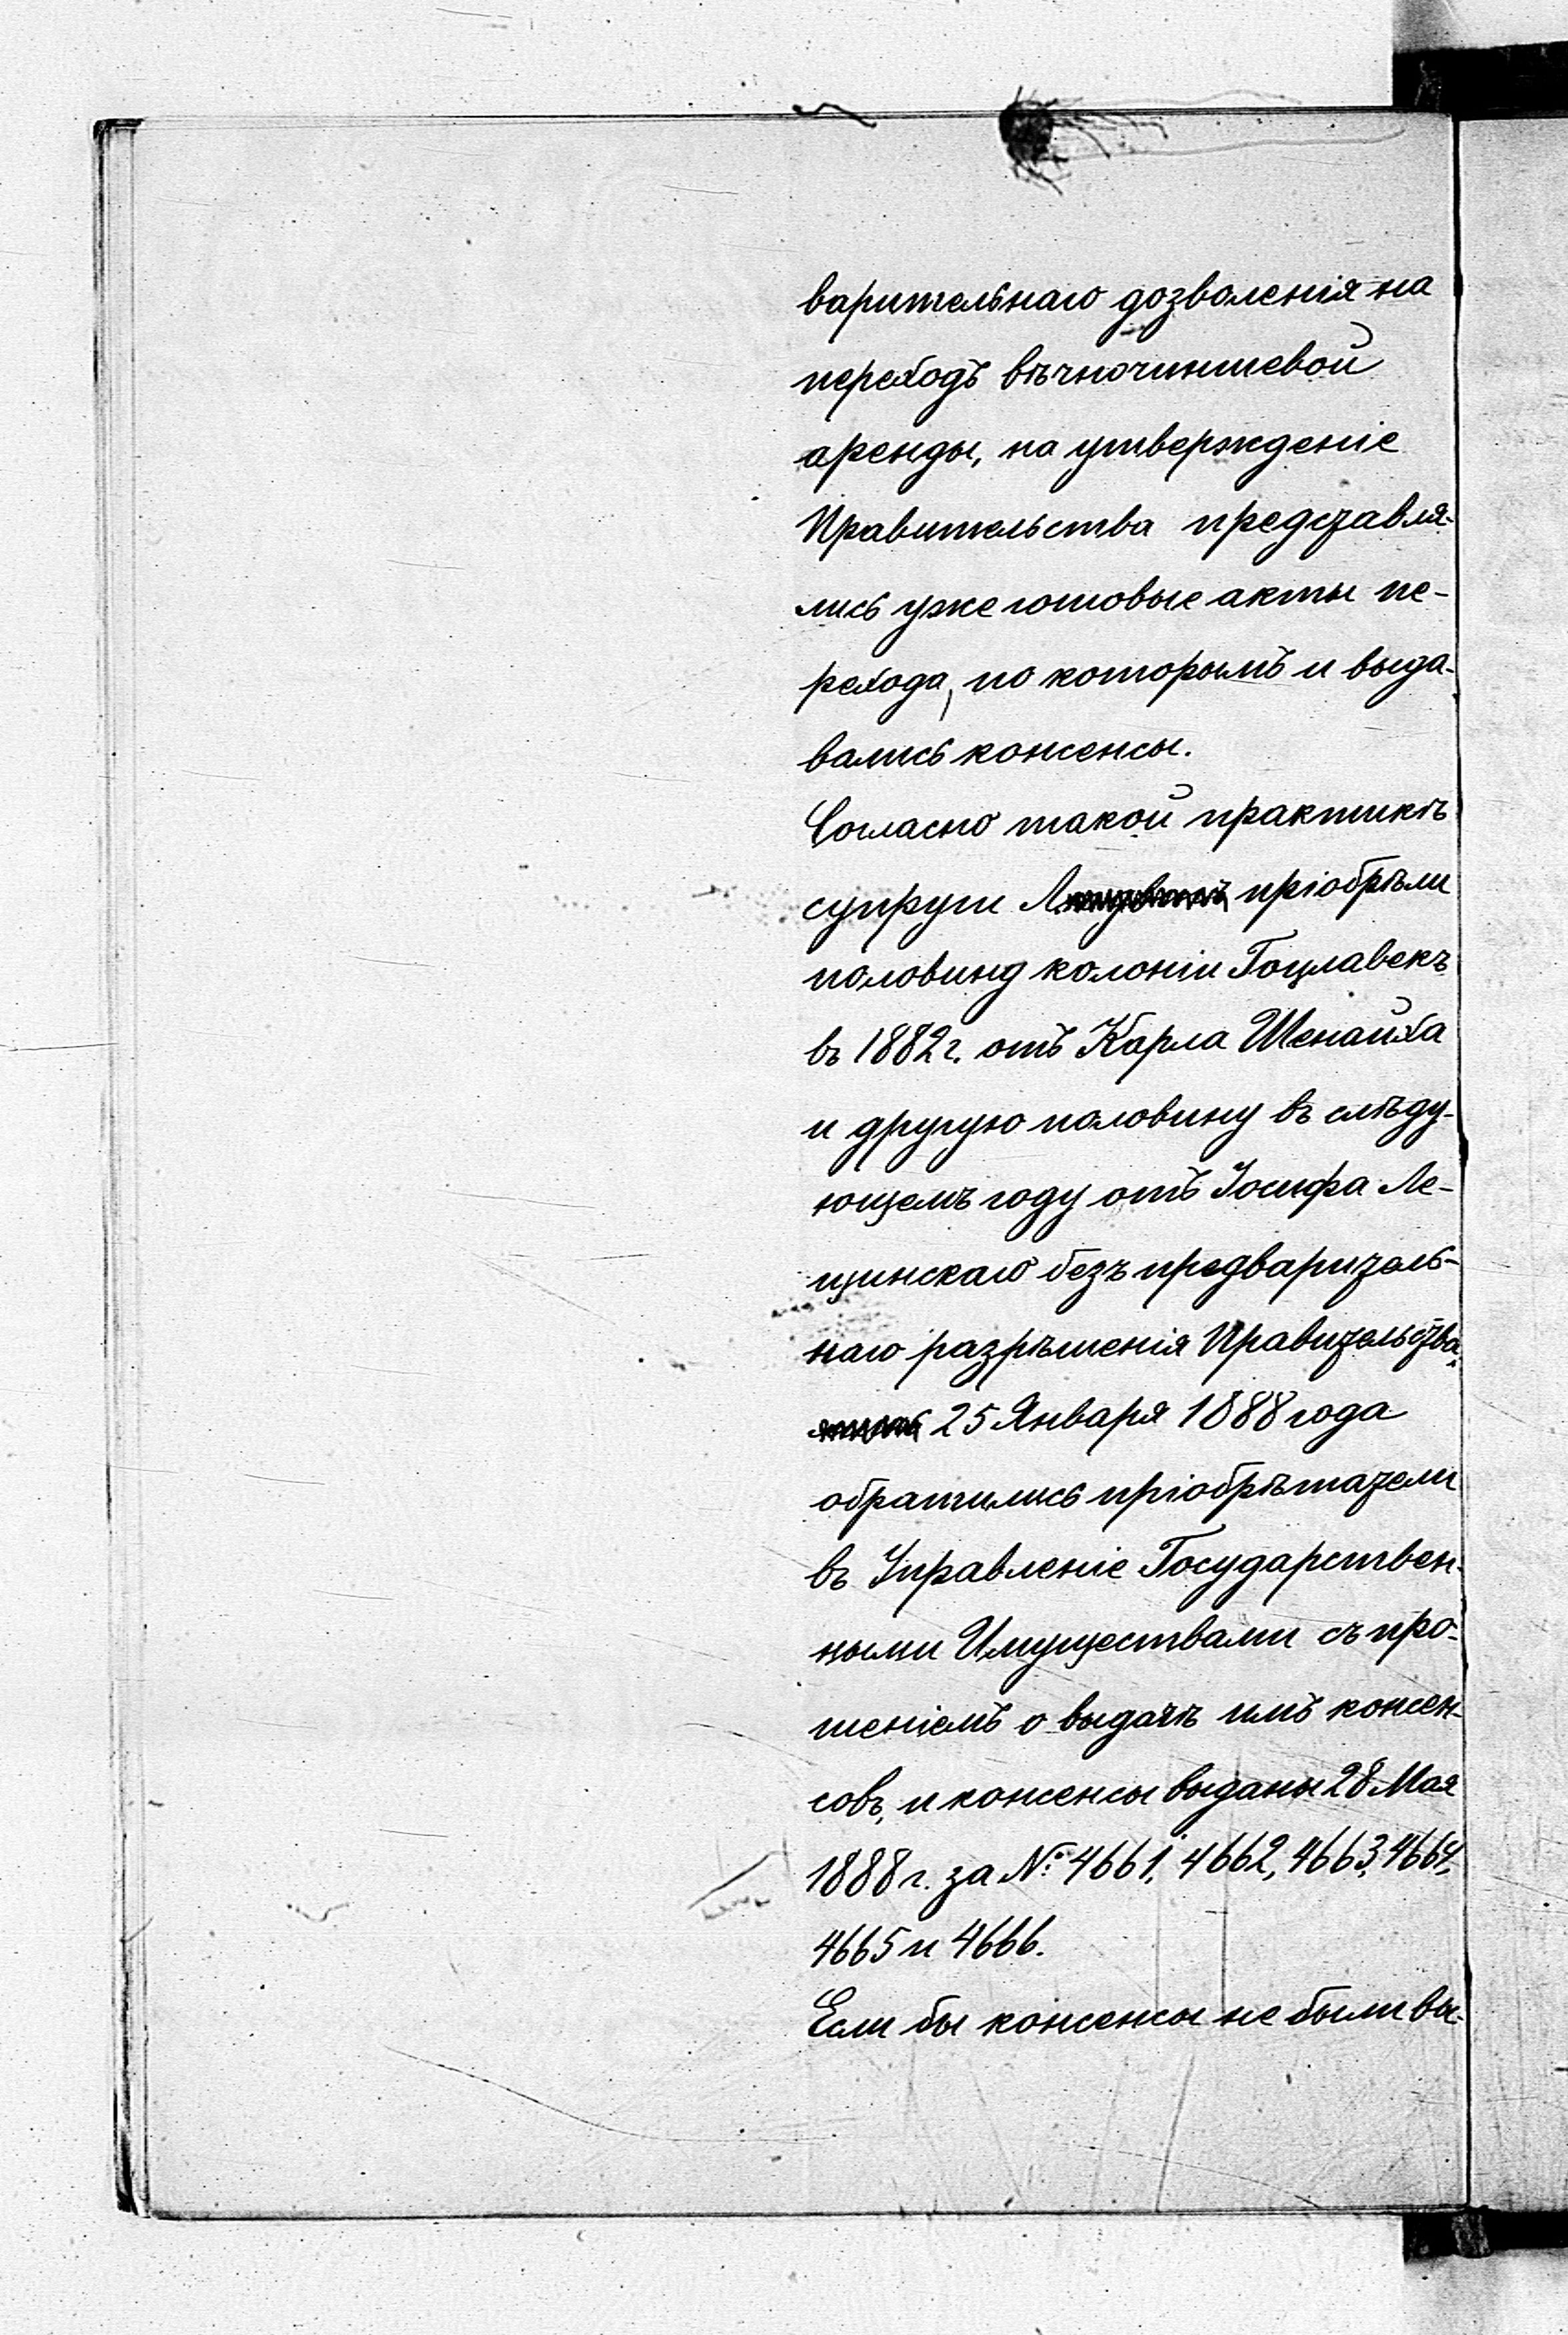 варительнаго дозволенія на
переходъ вѣчночиншевой
аренды, на утвержденіе
Правительства представля-
лись уже готовые акты пе-
рехода, по которымъ и выда-
вались консенсы.
Согласно такой практикѣ
супруги Л. пріобрѣли
половину колоніи Гоцлавекъ
въ 1882 г. отъ Карла Шенайха
и другую половину въ слѣду-
ющемъ году отъ Іосифа Ле-
щинскаго безъ предваритель-
наго разрѣшенія Правительства.
25 Января 1888 года
обратились пріобрѣтатели
въ Управленіе Государствен-
ными Имуществами съ про-
шеніемъ о выдачѣ имъ консен-
совъ, и консенсы выданы 28 Мая
1888 г. за №: 4661, 4662, 4663, 4664,
4665 и 4666.
Если бы консенсы не были вы-